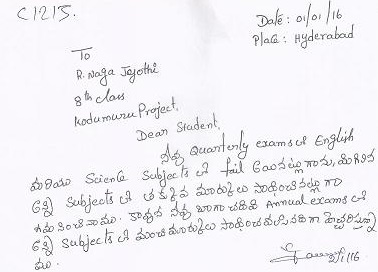 C1215.
Date : 01/01/16
Place : Hyderabad
To
R. Naga Jyothi
8th class
Kodumuru Project.
Dear Student,
నీవు Quarterly exams లో English
మరియు Science Subjects లో fail అయినట్లుగాను, మిగిలిన
అన్ని Subjects లో తక్కువ మార్కులు సాధించినట్లుగా
గమనించినాము. కావున నీవు బాగా చదివి Annual exams లో
అన్ని Subjects లో మంచి మార్కులు సాధించవలసినదిగా హెచ్చరిస్తున్నా
ము.